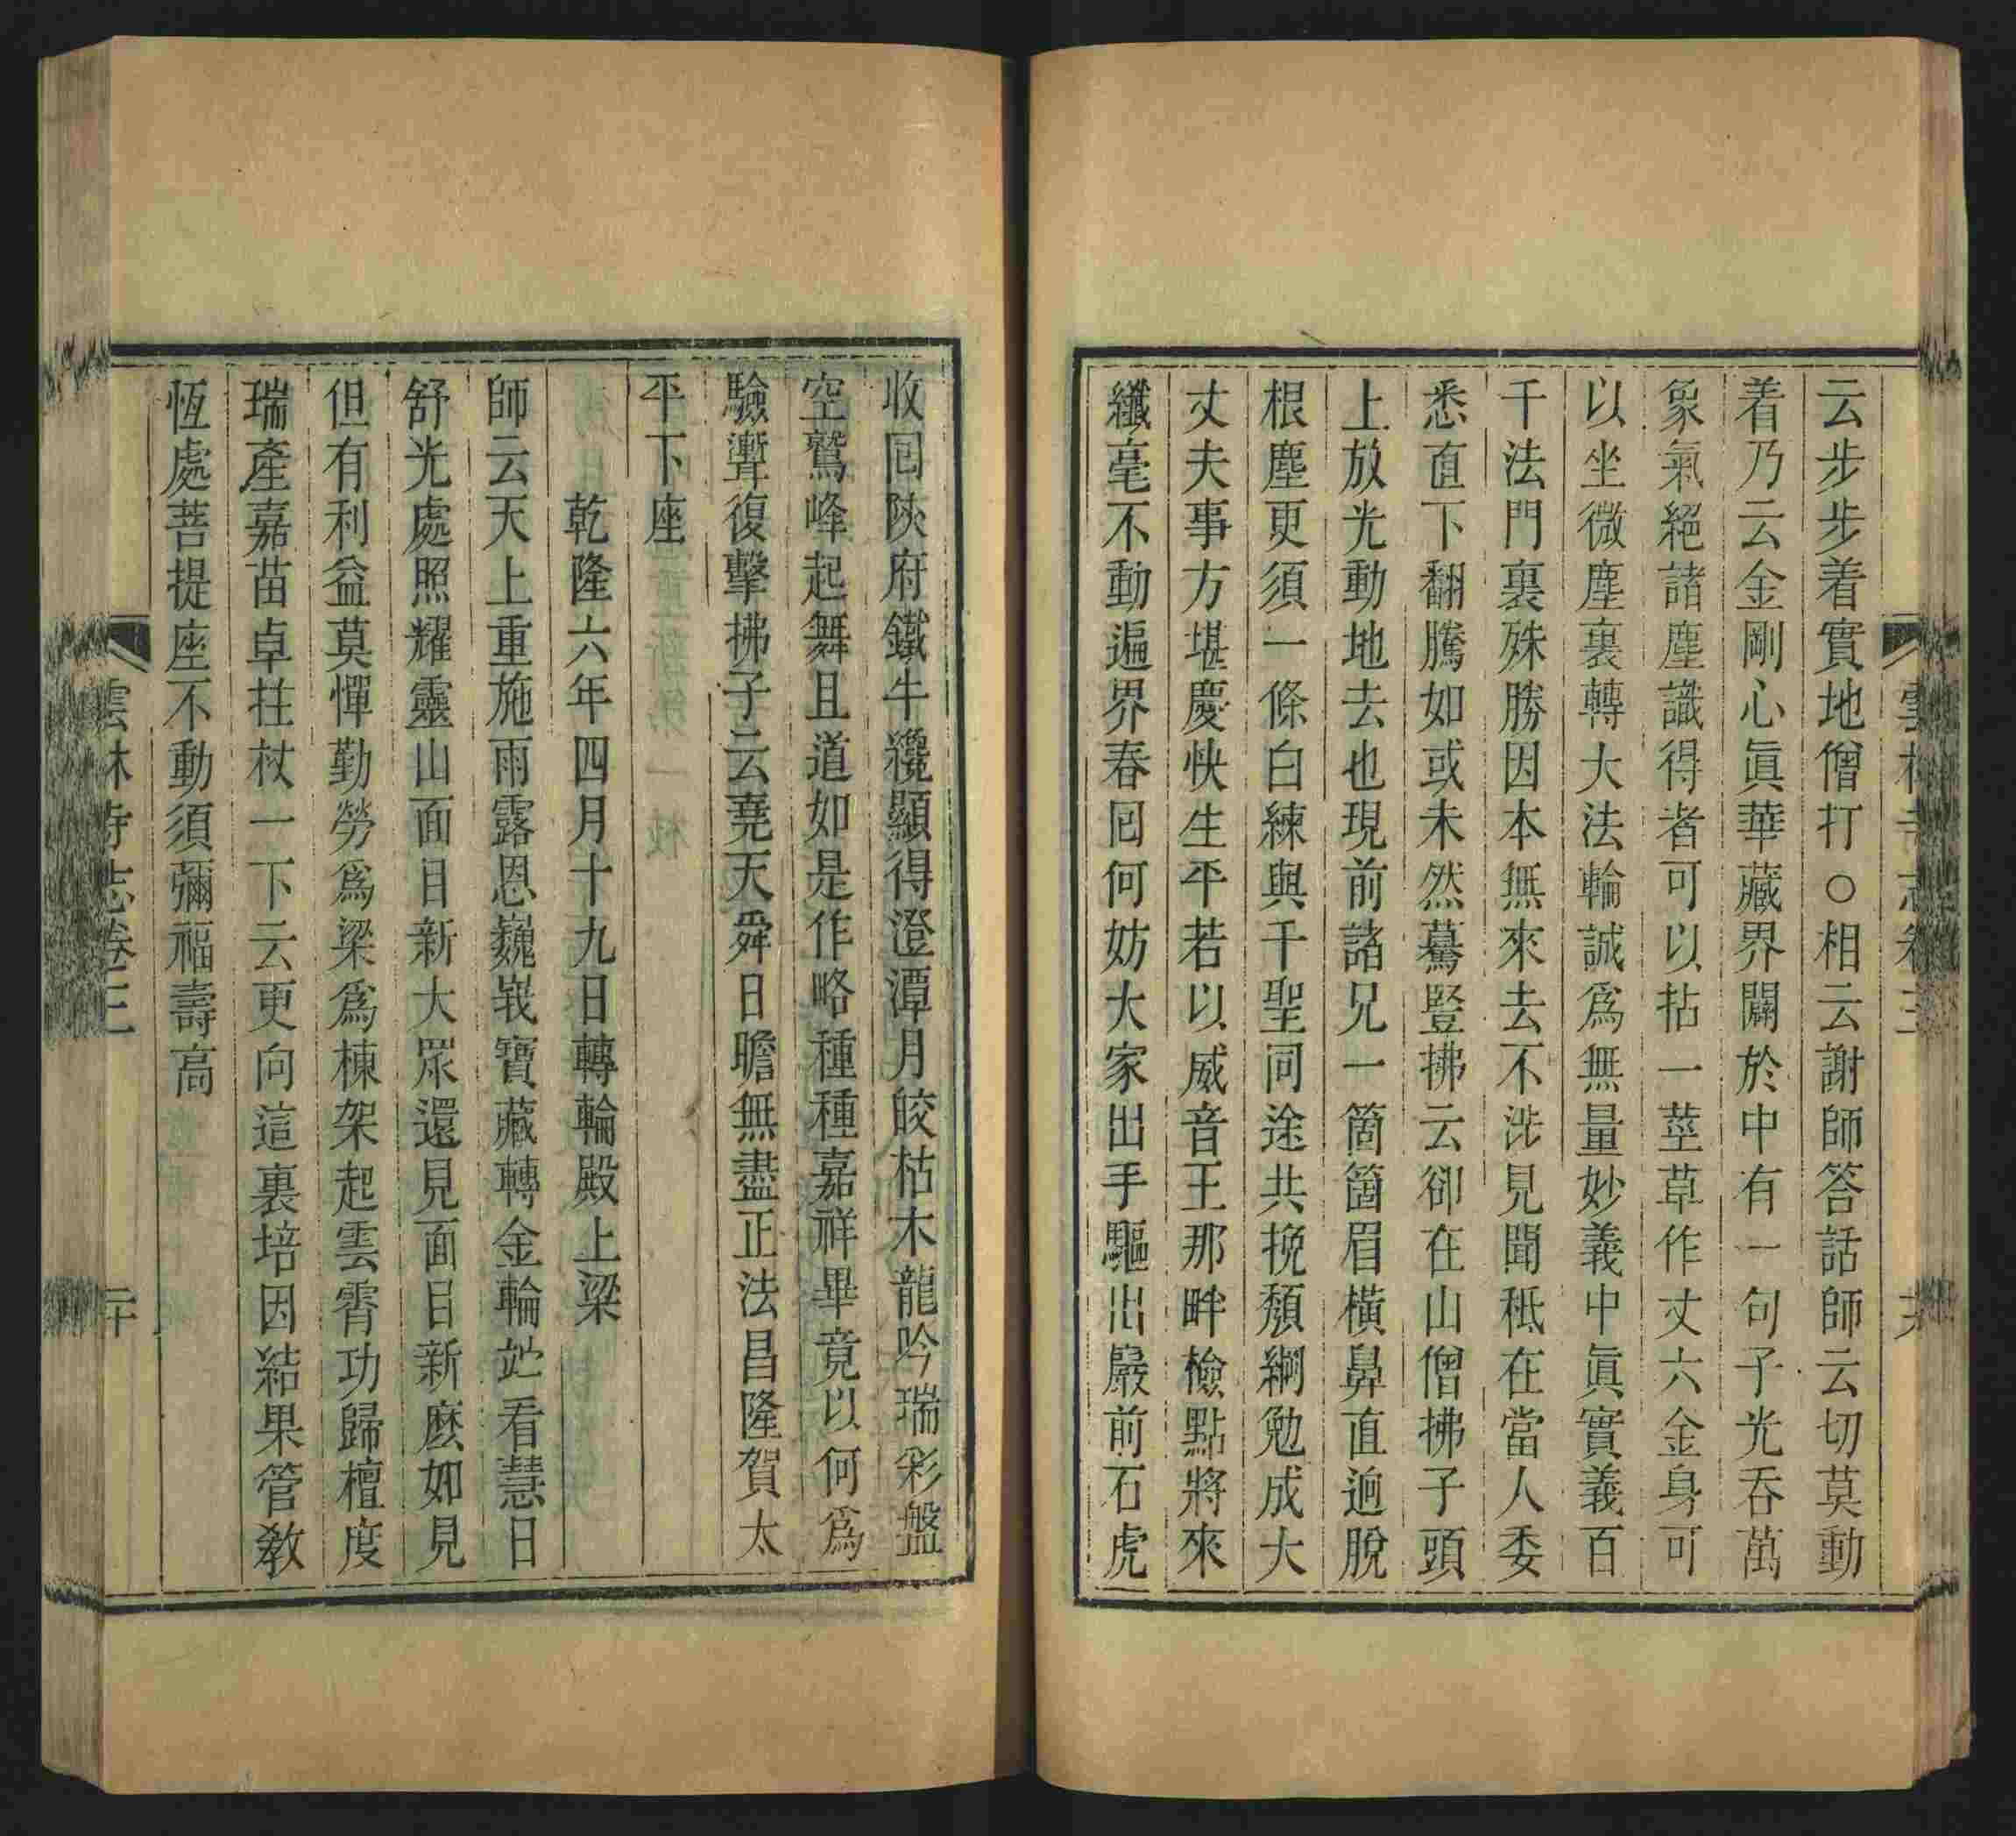 雲林寺志卷三
云步步着實地僧打○相云謝師答話師云切莫動
着乃云金剛心眞華藏界闢於中有一句子光吞萬
象氣絕諸塵識得者可以拈一莖草作丈六金身可
以坐微塵裏轉大法輪誠爲無量妙義中眞實義百
千法門裏殊勝因本無來去不涉見聞秪在當人委
悉直下翻騰如或未然驀豎拂云卻在山僧拂子頭
上放光動地去也現前諸兄一箇箇眉橫鼻直逈脫
根塵更須一條白練與千聖同途共挽頹綱勉成大
丈夫事方堪慶快生平若以威音王那畔檢點將來
纖毫不動遍界春囘何妨大家出手驅出巖前石虎
收囘陝府鐵牛纔顯得澄潭月皎枯木龍吟瑞彩盤
空鷲峰起舞且道如是作略種種嘉祥畢竟以何爲
驗灊復擊拂子云堯天舜日瞻無盡正法昌隆賀太
平下座
乾隆六年四月十九日轉輪殿上梁
師云天上重施雨露恩巍峩寶藏轉金輪竚看慧日
舒光處照耀靈山面目新大眾還見面目新麽如見
但有利益莫憚勤勞爲梁爲棟架起雲霄功歸檀度
瑞產嘉苗卓拄杖一下云更向這裏培因結果管教
恆處菩提座不動須彌福壽高
雲林寺志卷三
二十